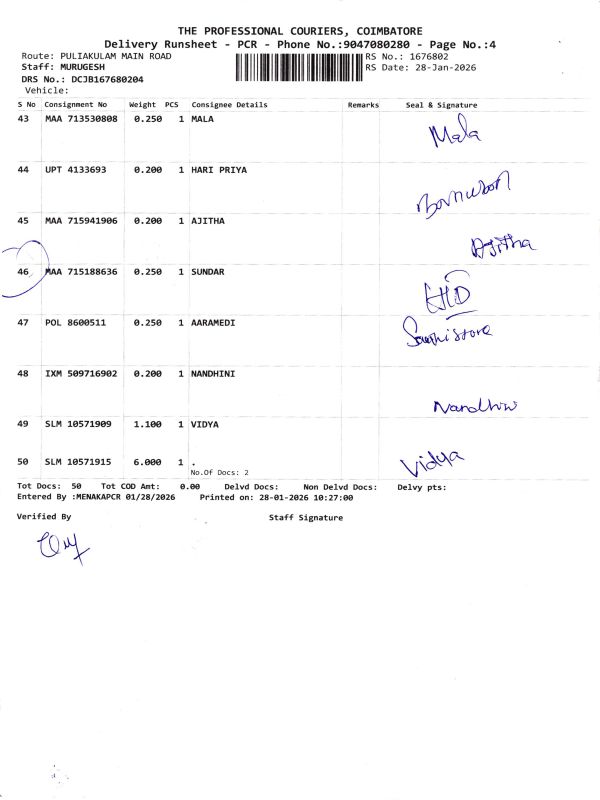 THE PROFESSIONAL COURIERS, COIMBATORE
Delivery Runsheet - PCR - Phone No.:9047080280 - Page No.:4
Route: PULIAKULAM MAIN ROAD RS No.: 1676802
Staff: MURUGESH RS Date: 28-Jan-2026
DRS No.: DCJB167680204
Vehicle:
S No Consignment No Weight PCS Consignee Details Remarks Seal & Signature
43 MAA 713530808 0.250 1 MALA Mala
44 UPT 4133693 0.200 1 HARI PRIYA
45 MAA 715941906 0.200 1 AJITHA Ajitha
46 MAA 715188636 0.250 1 SUNDAR
47 POL 8600511 0.250 1 AARAMEDI
48 IXM 509716902 0.200 1 NANDHINI Nandhini
49 SLM 10571909 1.100 1 VIDYA
50 SLM 10571915 6.000 1 . Vidya
No.Of Docs: 2
Tot Docs: 50 Tot COD Amt: 0.00 Delvd Docs: Non Delvd Docs: Delvy pts:
Entered By :MENAKAPCR 01/28/2026 Printed on: 28-01-2026 10:27:00
Verified By Staff Signature